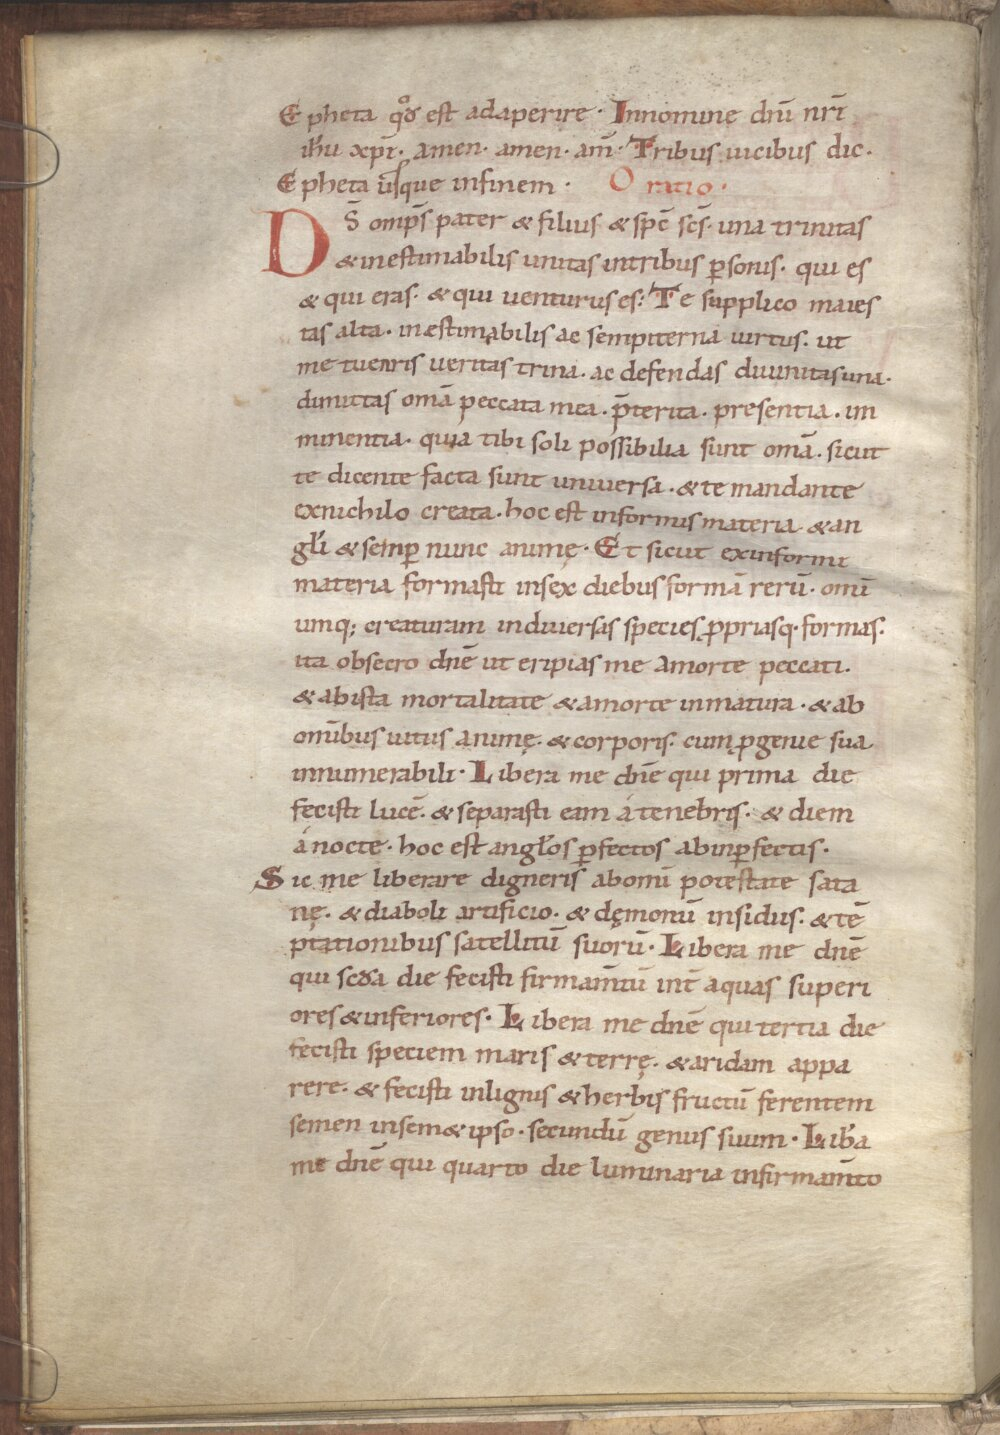 Epheta qđ est adaperire · Innomine dnī nr̄i
ih̄u xp̄i. amen · amen · am̄ · Tribus uicibus dic ·
Epheta usque infinem · Oratio ·
Ds̄ omp̄s pater & filius & sp̄c sc̄s · una trinitas
& inestimabilis unitas intribus p̱sonis · qui es
& qui eras · & qui uenturus es : Te supplico maies
tas alta · inęstimabilis ac sempiterna uirtus · ut
me tuearis ueritas trina · ac defendas diuinitas una ·
dimittas om̄a peccata mea · p̄terita · presentia · im
minentia · quia tibi soli possibilia sunt om̄a · sicut
te dicente facta sunt uniuersa · & te mandante
exnichilo creata · hoc est informis materia · & an
gl̄i & semp̱ nunc animę · Et sicut exinformi
materia formasti insex diebus formā rerū · omī
umq; creaturam indiuersas species p̱priasq · formas ·
ita obsecro dnē ut eripias me amorte peccati ·
& abista mortalitate & amorte inmatura · & ab
omībus uitiis animę · & corporis · cum p̱genie sua
innumerabili · Libera me dnē qui prima die
fecisti lucē · & separasti eam á tenebris · & diem
á nocte · hoc est angl̄os p̱fectos abinp̱fectis ·
Sic me liberare digneris abomī potestate sata
nę · & diaboli artificio · & dęmonū insidiis · & tē
ptationibus satellitū suorū · Libera me dnē
qui scđa die fecisti firmam̄tū int̄ aquas superi
ores & inferiores · Libera me dnē qui tertia die
fecisti speciem maris & terrę · & aridam appa
rere · & fecisti inlignis & herbis fructū ferentem
semen insem& ipso · secundū genus suum · Lib̄a
me dnē qui quarto die luminaria infirmam̄to